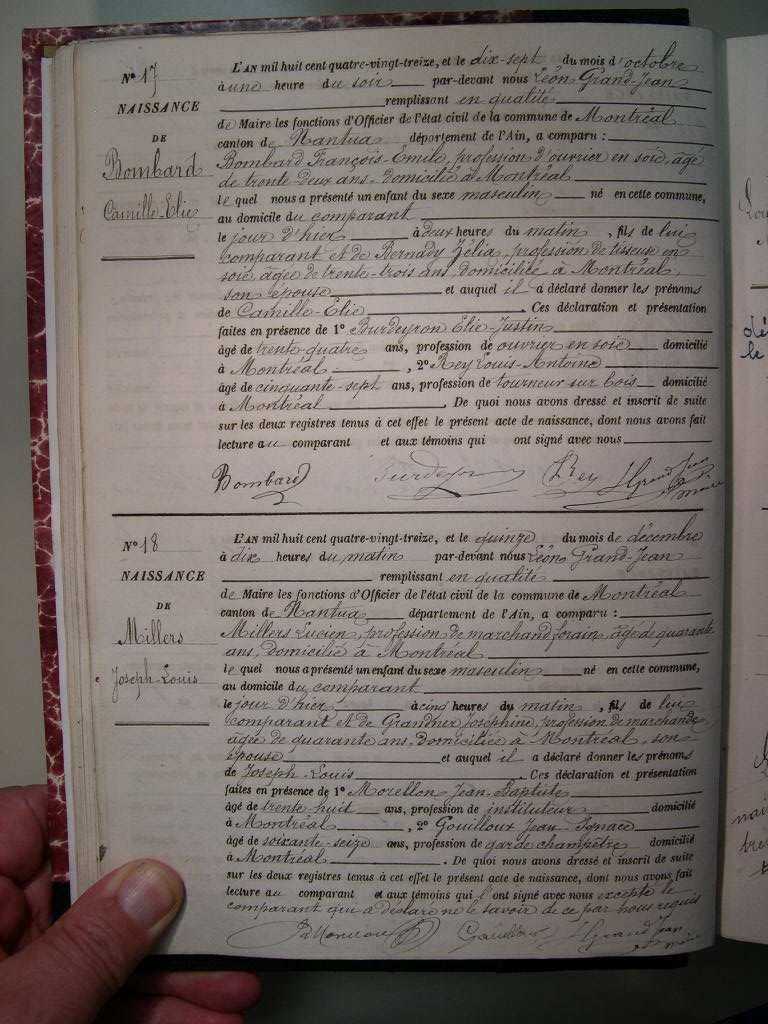 N° 17
NAISSANCE
DE
Bombard
Camille-Elie
L'AN mil huit cent quatre-vingt-treize, et le dix-sept du mois d'octobre
à une heure du soir par-devant nous Léon Grand-Jean
remplissant en qualité
de Maire les fonctions d'Officier de l'état civil de la commune de Montréal
canton de Nantua département de l'Ain, a comparu :
Bombard François-Emile, profession d'ouvrier en soie, âgé
de trente deux ans, domicilié à Montréal
le quel nous a présenté un enfant du sexe masculin né en cette commune,
au domicile du comparant
le jour d'hier à deux heures du matin, fils de lui
comparant et de Bernady Zélia, profession de tisseuse en
soie, âgée de trente-trois ans, domiciliée à Montréal,
son épouse et auquel il a déclaré donner les prénoms
de Camille-Elie. Ces déclaration et présentation
faites en présence de 1° Burdeyron Elie-Justin
âgé de trente-quatre ans, profession de ouvrier en soie domicilié
à Montréal, 2° Rey Louis-Antoine
âgé de cinquante-sept ans, profession de tourneur sur bois domicilié
à Montréal. De quoi nous avons dressé et inscrit de suite
sur les deux registres tenus à cet effet le présent acte de naissance, dont nous avons fait
lecture au comparant et aux témoins qui ont signé avec nous
Bombard Rey LGrand Jean
maire
N° 18
NAISSANCE
DE
Millers
Joseph-Louis
L'AN mil huit cent quatre-vingt-treize, et le quinze du mois de décembre
à dix heures du matin par-devant nous Léon Grand-Jean
remplissant en qualité
de Maire les fonctions d'Officier de l'état civil de la commune de Montréal
canton de Nantua, département de l'Ain, a comparu :
Millers Lucien, profession de marchand forain, âgé de quarante
ans, domicilié à Montréal
le quel nous a présenté un enfant du sexe masculin né en cette commune,
au domicile du comparant
le jour d'hier à cinq heures du matin, fils de lui
comparant et de Grandner Joséphine, profession de marchande,
âgée de quarante ans, domiciliée à Montréal, son
épouse et auquel il a déclaré donner les prénoms
de Joseph-Louis. Ces déclaration et présentation
faites en présence de 1° Morellon Jean-Baptiste
âgé de trente huit ans, profession de instituteur domicilié
à Montréal, 2° Gouilloux Jean-Ignace
âgé de soixante-seize ans, profession de garde champêtre domicilié
à Montréal. De quoi nous avons dressé et inscrit de suite
sur les deux registres tenus à cet effet le présent acte de naissance, dont nous avons fait
lecture au comparant et aux témoins qui ont signé avec nous excepté le
comparant qui a déclaré ne le savoir de ce par nous requis
Gouilloux LGrand Jean
maire